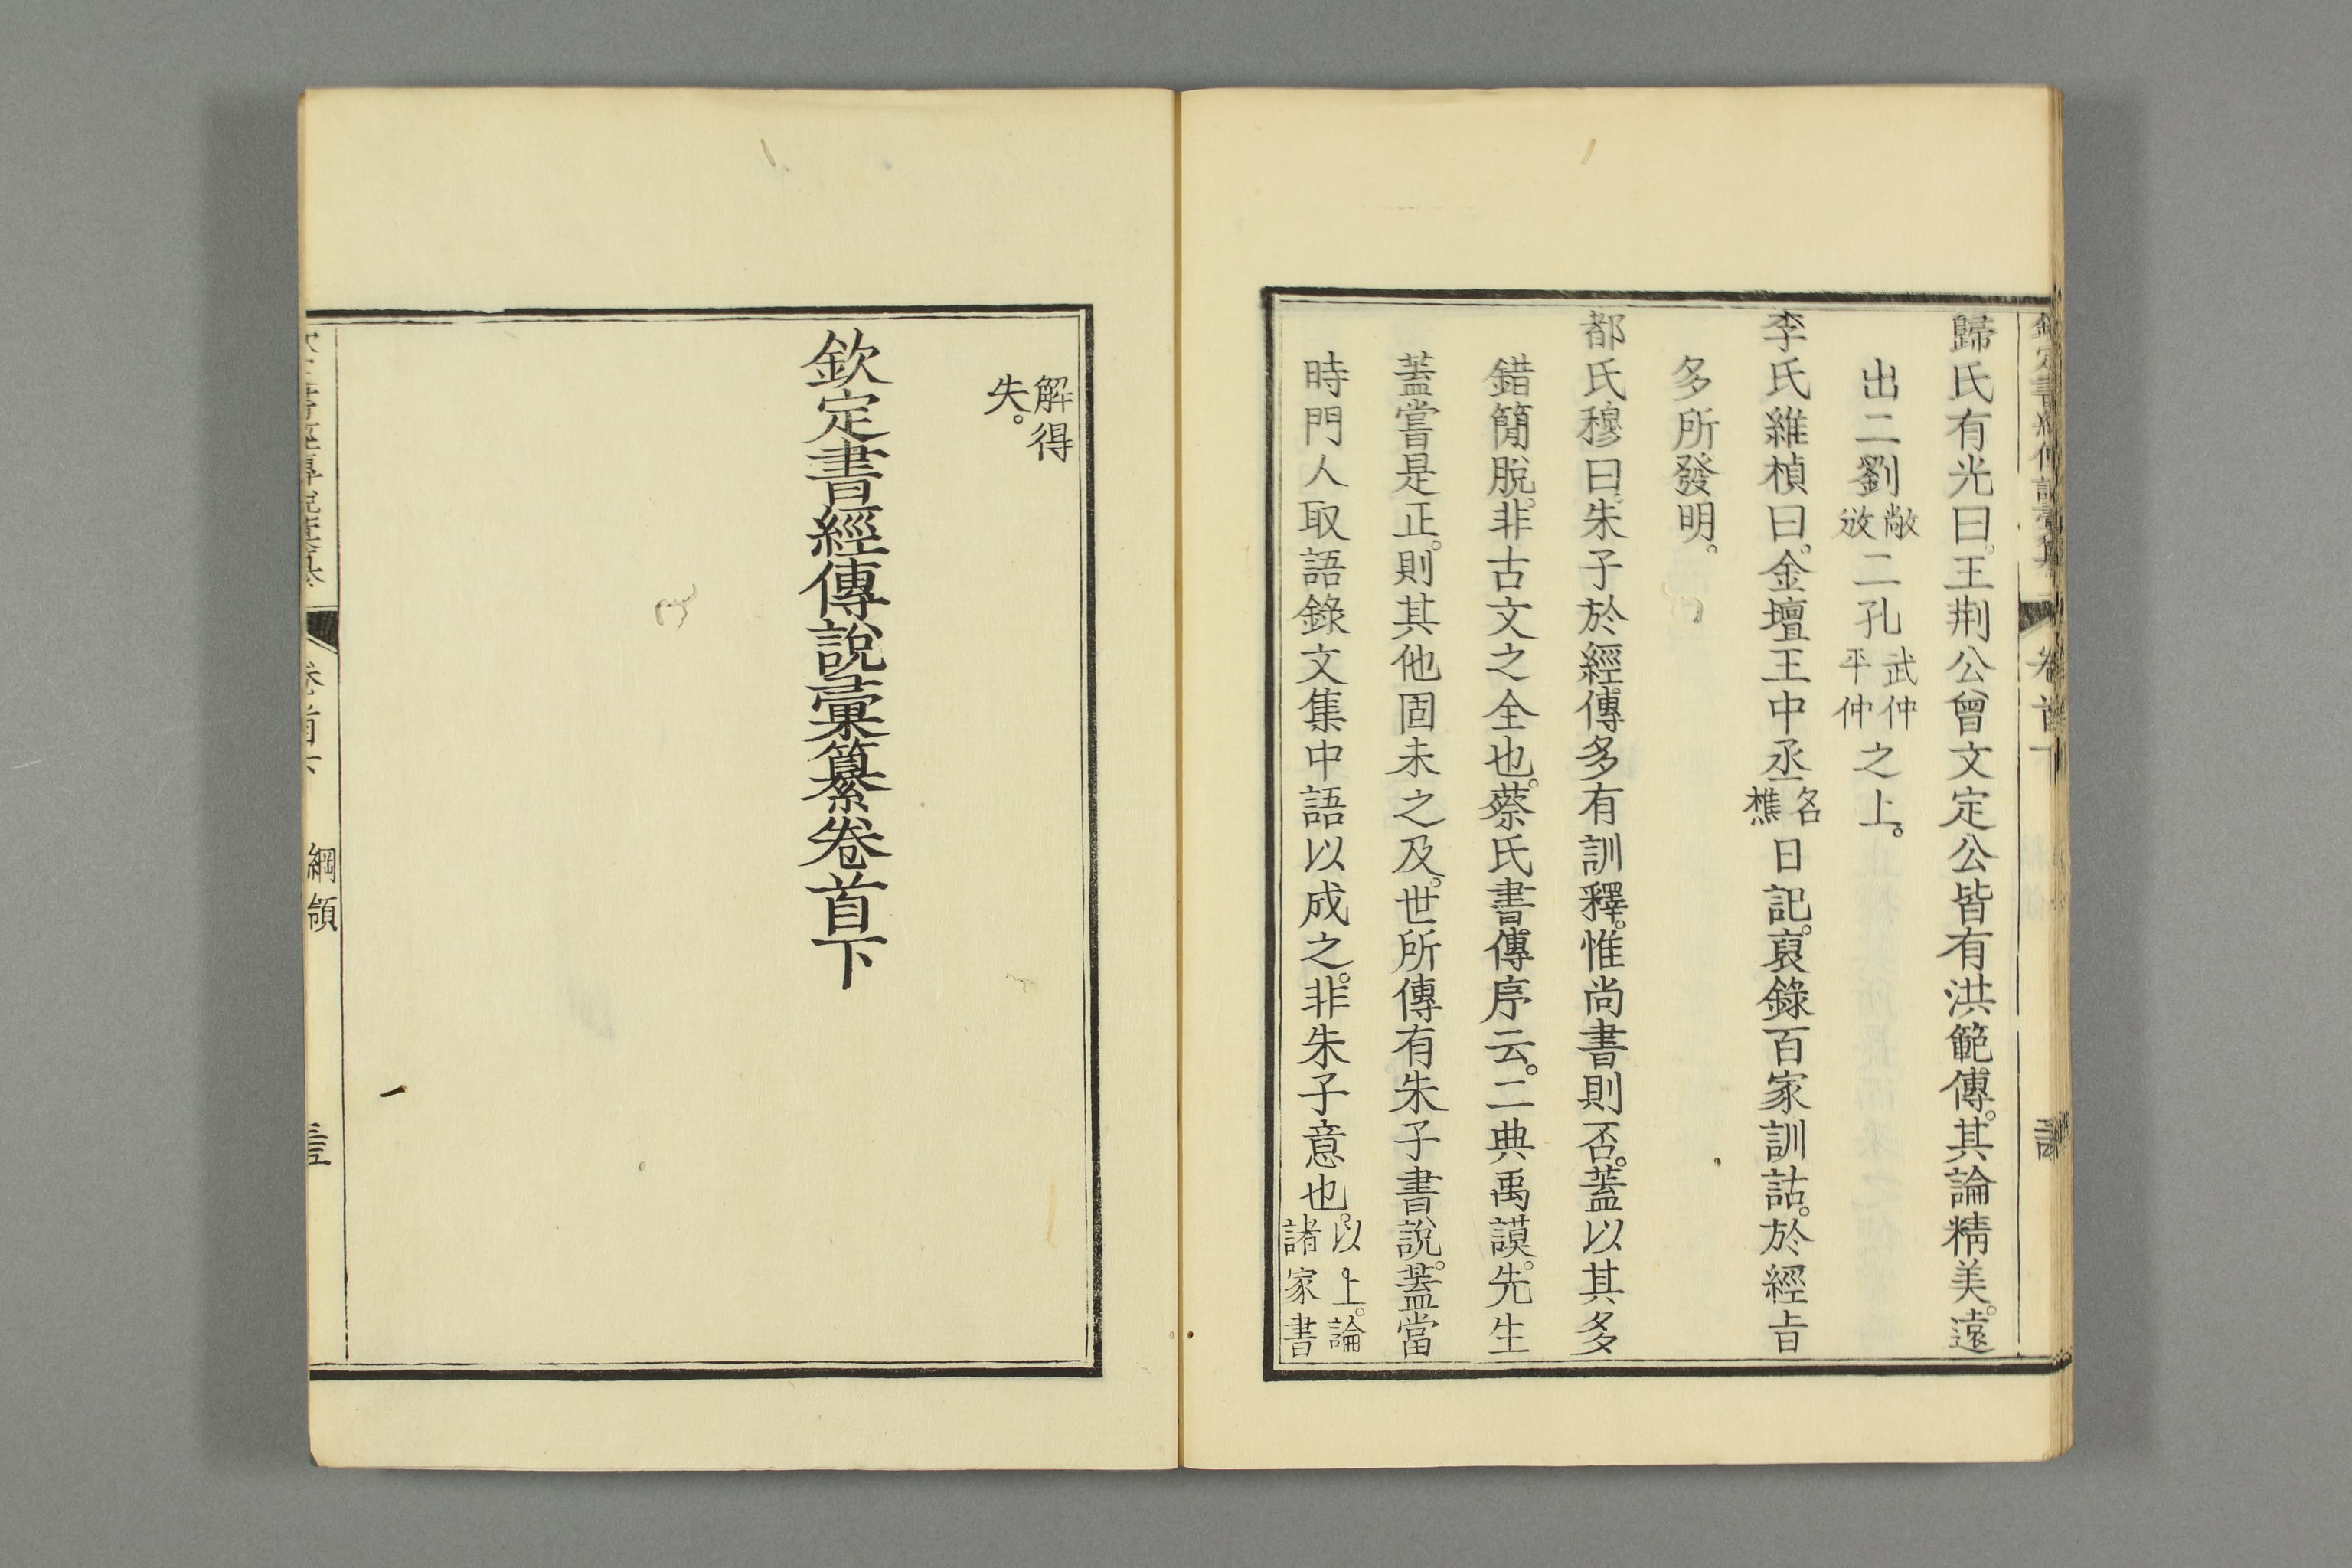 歸氏有光曰。王荆公曾文定公皆有洪範傳。其論精美。遠
出二劉敞攽二孔武仲平仲之上。
李氏維楨曰。金壇王中丞名樵日記。裒錄百家訓詁。於經旨
多所發明。
都氏穆曰。朱子於經傳多有訓釋。惟尚書則否。蓋以其多
錯簡脫。非古文之全也。蔡氏書傳序云。二典禹謨。先生
蓋嘗是正。則其他固未之及。世所傳有朱子書說。蓋當
時門人取語錄文集中語以成之。非朱子意也。以上。論諸家書
解得失。
欽定書經傳說彙纂卷首下
綱領